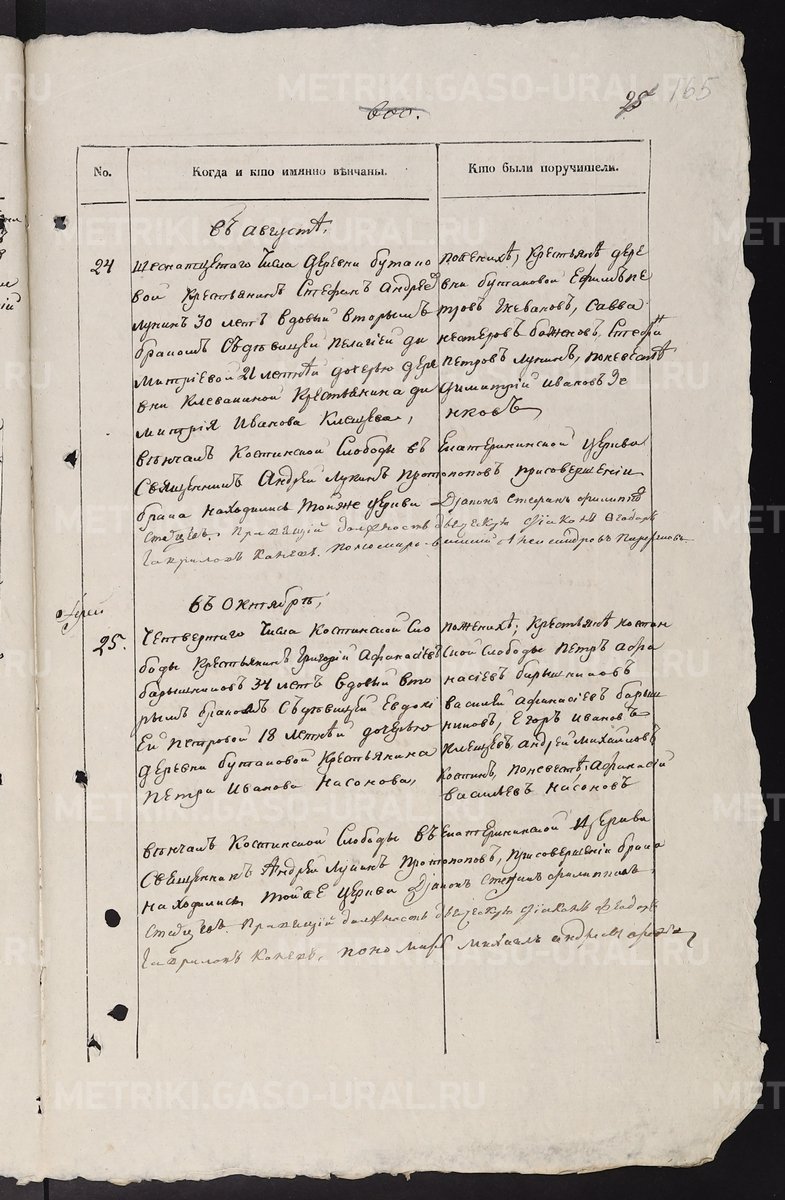 METRIKI.GASO-URAL.RU
600.
165
No.
Когда и кто имянно вѣнчаны.
Кто были поручители.
въ августѣ,
24
шеснатцетаго Числа Деревни бутано
вой Крестьянинъ Стефанъ Андреевъ
Лукинъ 30 летъ вдовый вторымъ
бракомъ Съ девицей Пелагией ди
митріевой 21 летней дочерью дере
вни Клевакиной Крестьянина ди
митрія Иванова Клещева,
поженихѣ, Крестьянѣ дере
вни бутановой Ефимъ пе
тровъ, Савва
нестеровъ баженовъ, Стефанъ
Петровъ Лукинъ, поневестѣ
Димитрій Ивановъ Зе
нковъ
венчалъ Костинской Слободы въ Екатерининской Церкви
Священникъ Андрей Лукинъ Протопоповъ присовершеніи
брака находились тойже Церкви Дьяконъ Стефанъ Филиповъ
Правящій должность дьячекую діаконъ Феодоръ
Гавриловъ Пономарь
въ Октябрѣ,
25.
Четвертаго Числа Костинской Сло
боды Крестьянинъ Григорій Афанасіевъ
барышниковъ 34 летъ вдовый вто
рымъ бракомъ Съ девицей Евдокі
ей Петровой 18 летней дочерью
деревни бутановой Крестьянина
Петра Иванова Насонова,
поженихѣ, Крестьянѣ костин
ской слободы Петръ афа
насіевъ барышниковъ
василей афанасіевъ барыш
никовъ, Егоръ Ивановъ
Клещевъ андрей Михайловъ
Костинъ, поневестѣ, Афанасій
васильевъ насоновъ
венчалъ Костинской Слободы въ Екатерининской Церкви
Священникъ Андрей Лукинъ Протопоповъ, присовершеніи брака
находились тойже Церкви Дьяконъ Стефанъ Филиповъ
Правящій должность дьячекую діаконъ Феодоръ
Гавриловъ пономарь Михаилъ